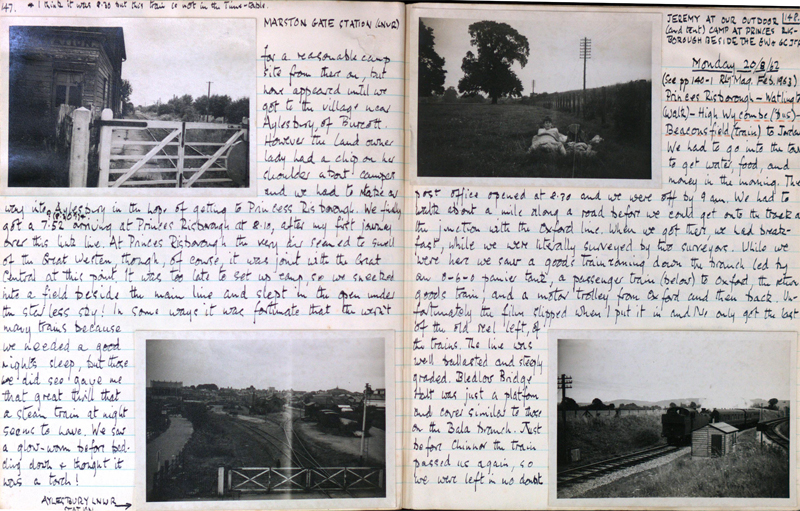 147. * I think it was 8.30 but this train is not in the Time-table.
MARSTON GATE STATION (LNWR)
for a reasonable camp
site from then on, but
none appeared until we
got to the village near
Aylesbury, of Burcott.
However the land owner
lady had a chip on her
shoulder about campers
and we had to make our
way into Aylesbury in the hope of getting to Princess Risborough. We finally
got a 7.52 arriving at Princes Risborough at 8.10, after my first journey
over this little line. At Princes Risborough the very air seemed to smell
of the Great Western though, of course, it was joint with the Great
Central at this point. It was too late to set up camp so we sneaked
into a field beside the main line and slept in the open under
the starless sky! In some ways it was fortunate that there weren't
many trains because
we needed a good
night's sleep, but those
we did see gave me
that great thrill that
a steam train at night
seems to have. We saw
a glow-worm before bed-
ding down & thought it
was a torch!
AYLESBURY LNWR
STATION
148
JEREMY AT OUR OUTDOOR
(and tent) CAMP AT PRINCES RIS-
BOROUGH BESIDE THE GW & GC JT
Monday 20/8/62
(See pp 140-1 Rly Mag. Feb. 1963)
Princes Risborough - Watlington
(walk) - High Wycombe (bus) -
Beaconsfield (train) to Jordans
We had to go into the town
to get water, food, and
money in the morning. The
post office opened at 8.30 and we were off by 9 am. We had to
walk about a mile along a road before we could get onto the track at
the junction with the Oxford line. When we got there, we had break-
fast, while we were literally surveyed by two surveyors. While we
were here we saw a goods train coming down the branch led by
an 0-6-0 panier tank, a passenger train (below) to Oxford, the return
goods train, and a motor trolley from Oxford and then back. Un-
fortunately the film slipped when I put it in and No. only get the last
of the old reel left, of
the trains. The line was
well ballasted and steeply
graded. Bledlow Bridge
Halt was just a platform
and cover similar to those
on the Bala branch. Just
before Chinnor the train
passed us again, so
we were left in no doubt